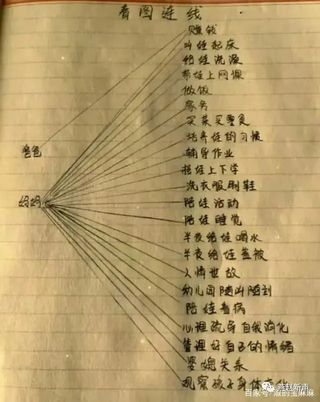 看图连线
赚钱
叫娃起床
给娃洗澡
养娃上网课
做饭
家务
买菜买零食
培养娃的习惯
辅导作业
爸爸
接娃上下学
洗衣服刷鞋
妈妈
陪娃活动
陪娃睡觉
半夜给娃喝水
半夜给娃盖被
人情世故
幼儿园随叫随到
陪娃看病
心理疏导自我消化
管理好自己的情绪
婆媳关系
观察孩子身体
百家号/